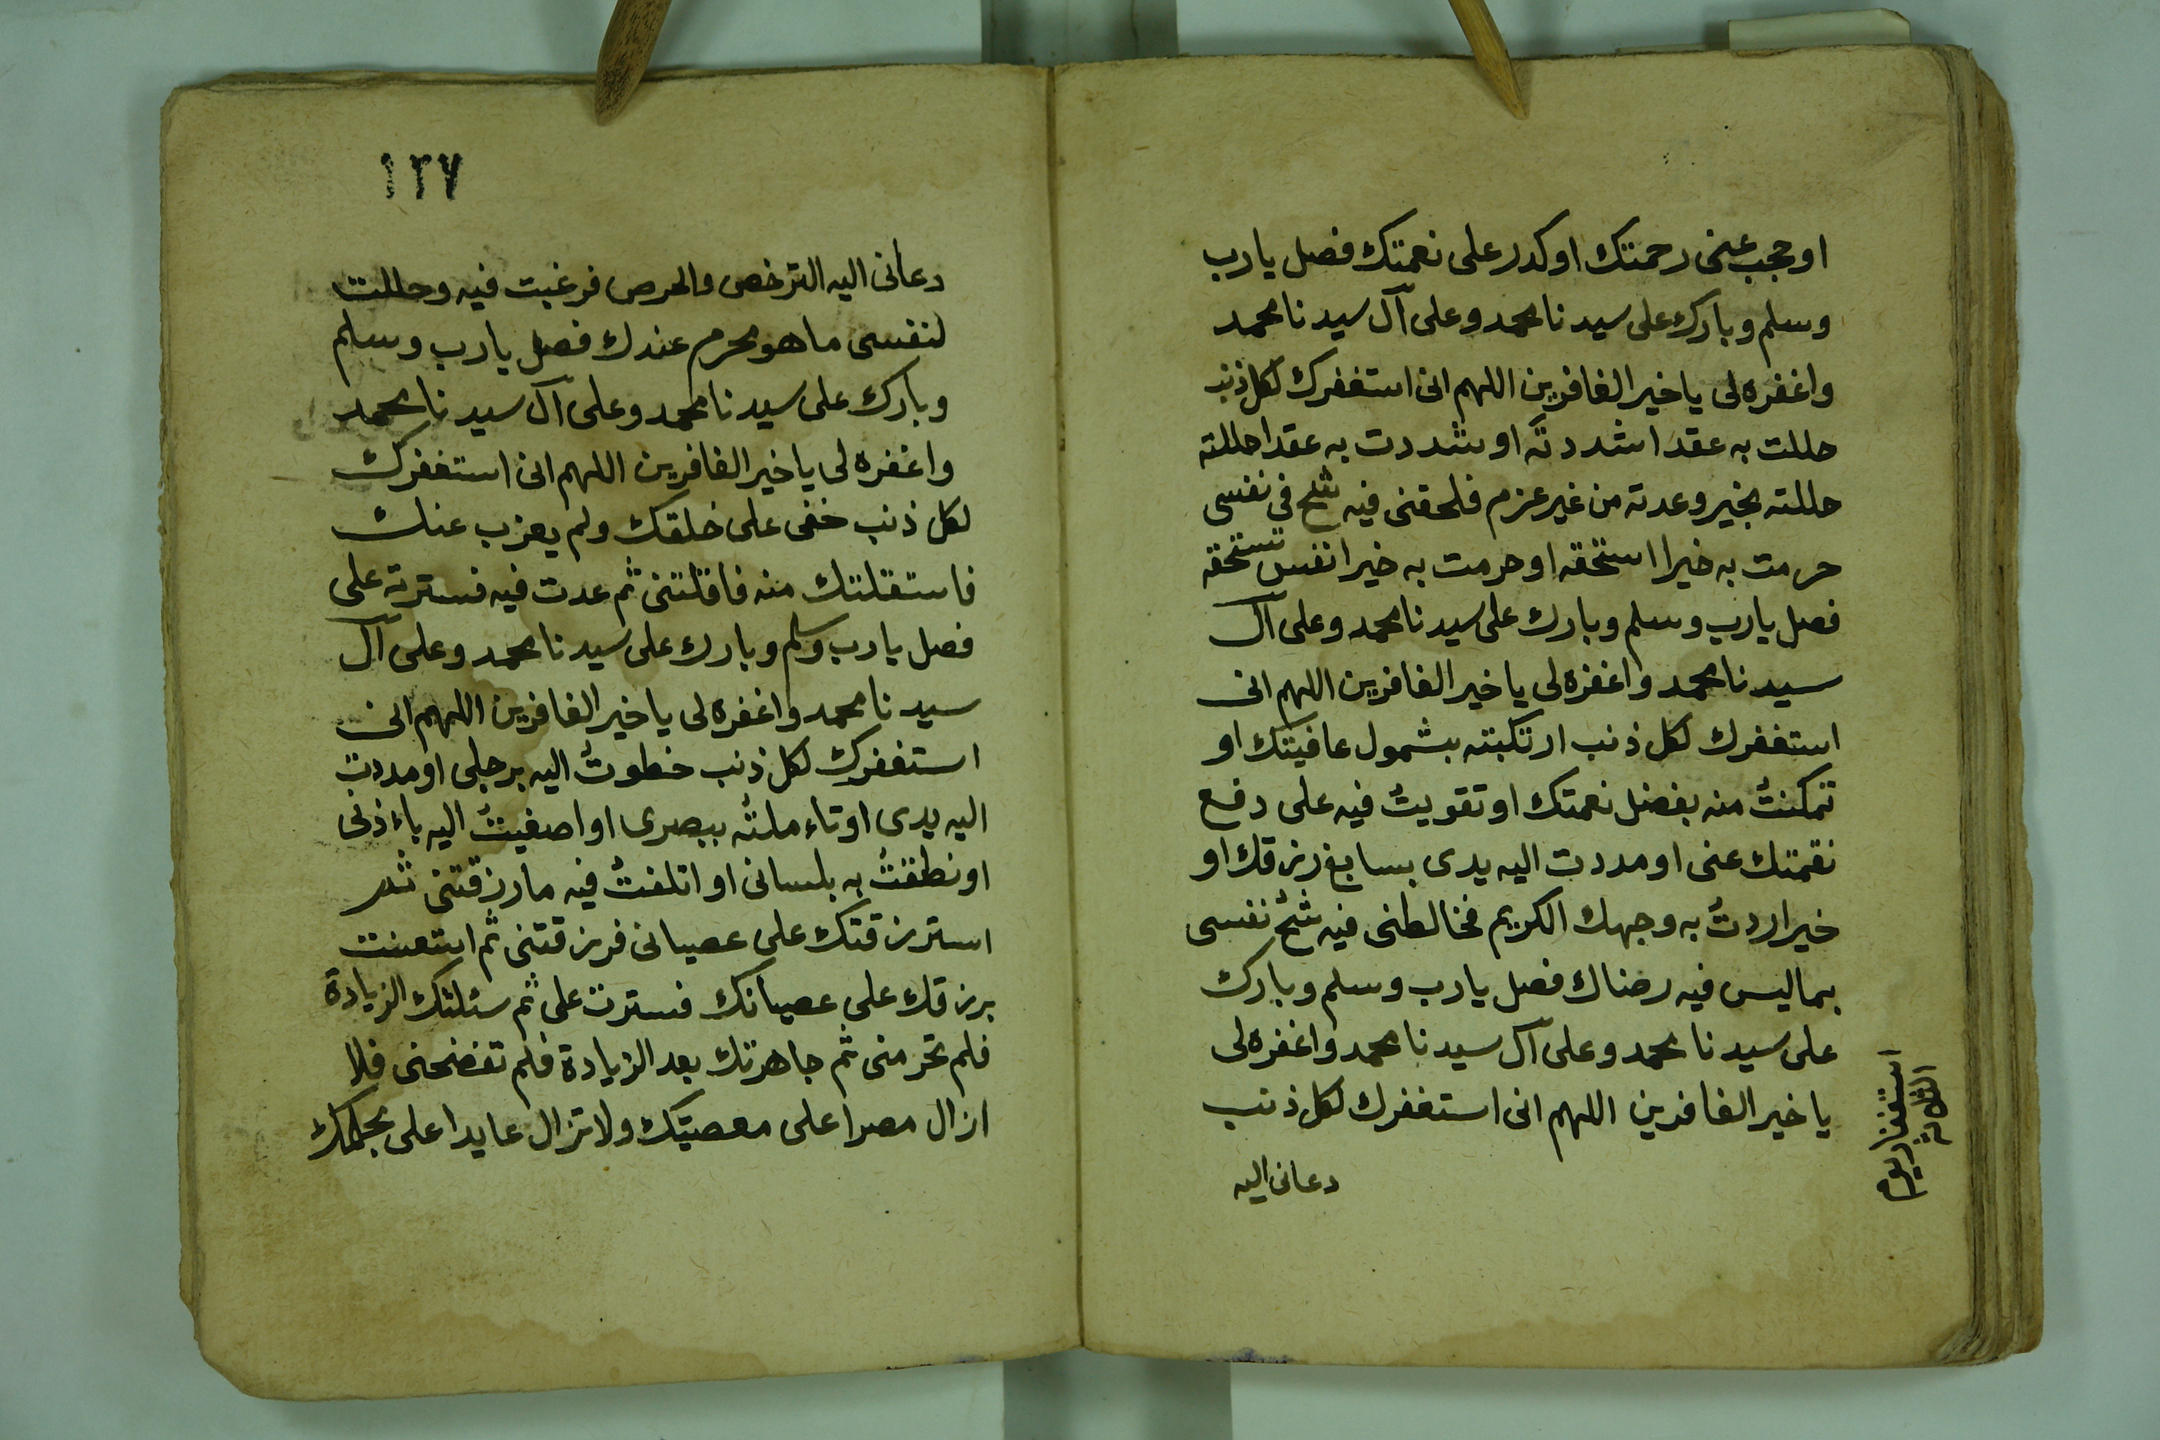 او حجب عنى رحمتك او كدر على نعمتك فصل يا رب
وسلم وبارك على سيدنا محمد وعلى آل سيدنا محمد
واغفره لى يا خير الغافرين اللهم انى استغفرك لكل ذنب
حللت به عقدا شددته او شددت به عقدا حللته
حللته بخير وعدته من غير عزم فلحقنى فيه شح فى نفسى
حرمت به خيرا استحقه او حرمت به خيرا نفس تستحقه
فصل يا رب وسلم وبارك على سيدنا محمد وعلى آل
سيدنا محمد واغفره لى يا خير الغافرين اللهم انى
استغفرك لكل ذنب ارتكبته بشمول عافيتك او
تمكنتُ منه بفضل نعمتك او تقويتُ فيه على دفع
نقمتك عنى او مددت اليه يدى بسابغ رزقك او
خير اردتُ به وجهك الكريم فخالطنى فيه شحُ نفسى
بما ليس فيه رضاك فصل يا رب وسلم وبارك
على سيدنا محمد وعلى آل سيدنا محمد واغفره لى
يا خير الغافرين اللهم انى استغفرك لكل ذنب
دعانى اليه
استغفار يوم
الثلاثا
١٢٧
دعانى اليه الترخص والحرص فرغبت فيه وحللت
لنفسى ما هو محرم عندك فصل يا رب وسلم
وبارك على سيدنا محمد وعلى آل سيدنا محمد
واغفره لى يا خير الغافرين اللهم انى استغفرك
لكل ذنب خفى على خلقك ولم يعزب عنك
فاستقلتك منه فاقلتنى ثم عدت فيه فسترته على
فصل يا رب وسلم وبارك على سيدنا محمد وعلى آل
سيدنا محمد واغفره لى يا خير الغافرين اللهم انى
استغفرك لكل ذنب خطوتُ اليه برجلى او مددت
اليه يدى او تاءملتُه ببصرى او اصغيتُ اليه باءذنى
او نطقتُ به بلسانى او اتلفتُ فيه ما رزقتنى ثم
استرزقتك على عصيانى فرزقتنى ثم استعنت
برزقك على عصيانك فسترت على ثم سئلتك الزيادة
فلم تحرمنى ثم جاهرتك بعد الزيادة فلم تفضحنى فلا
ازال مصرا على معصيتك ولا تزال عايدا على بحلمك